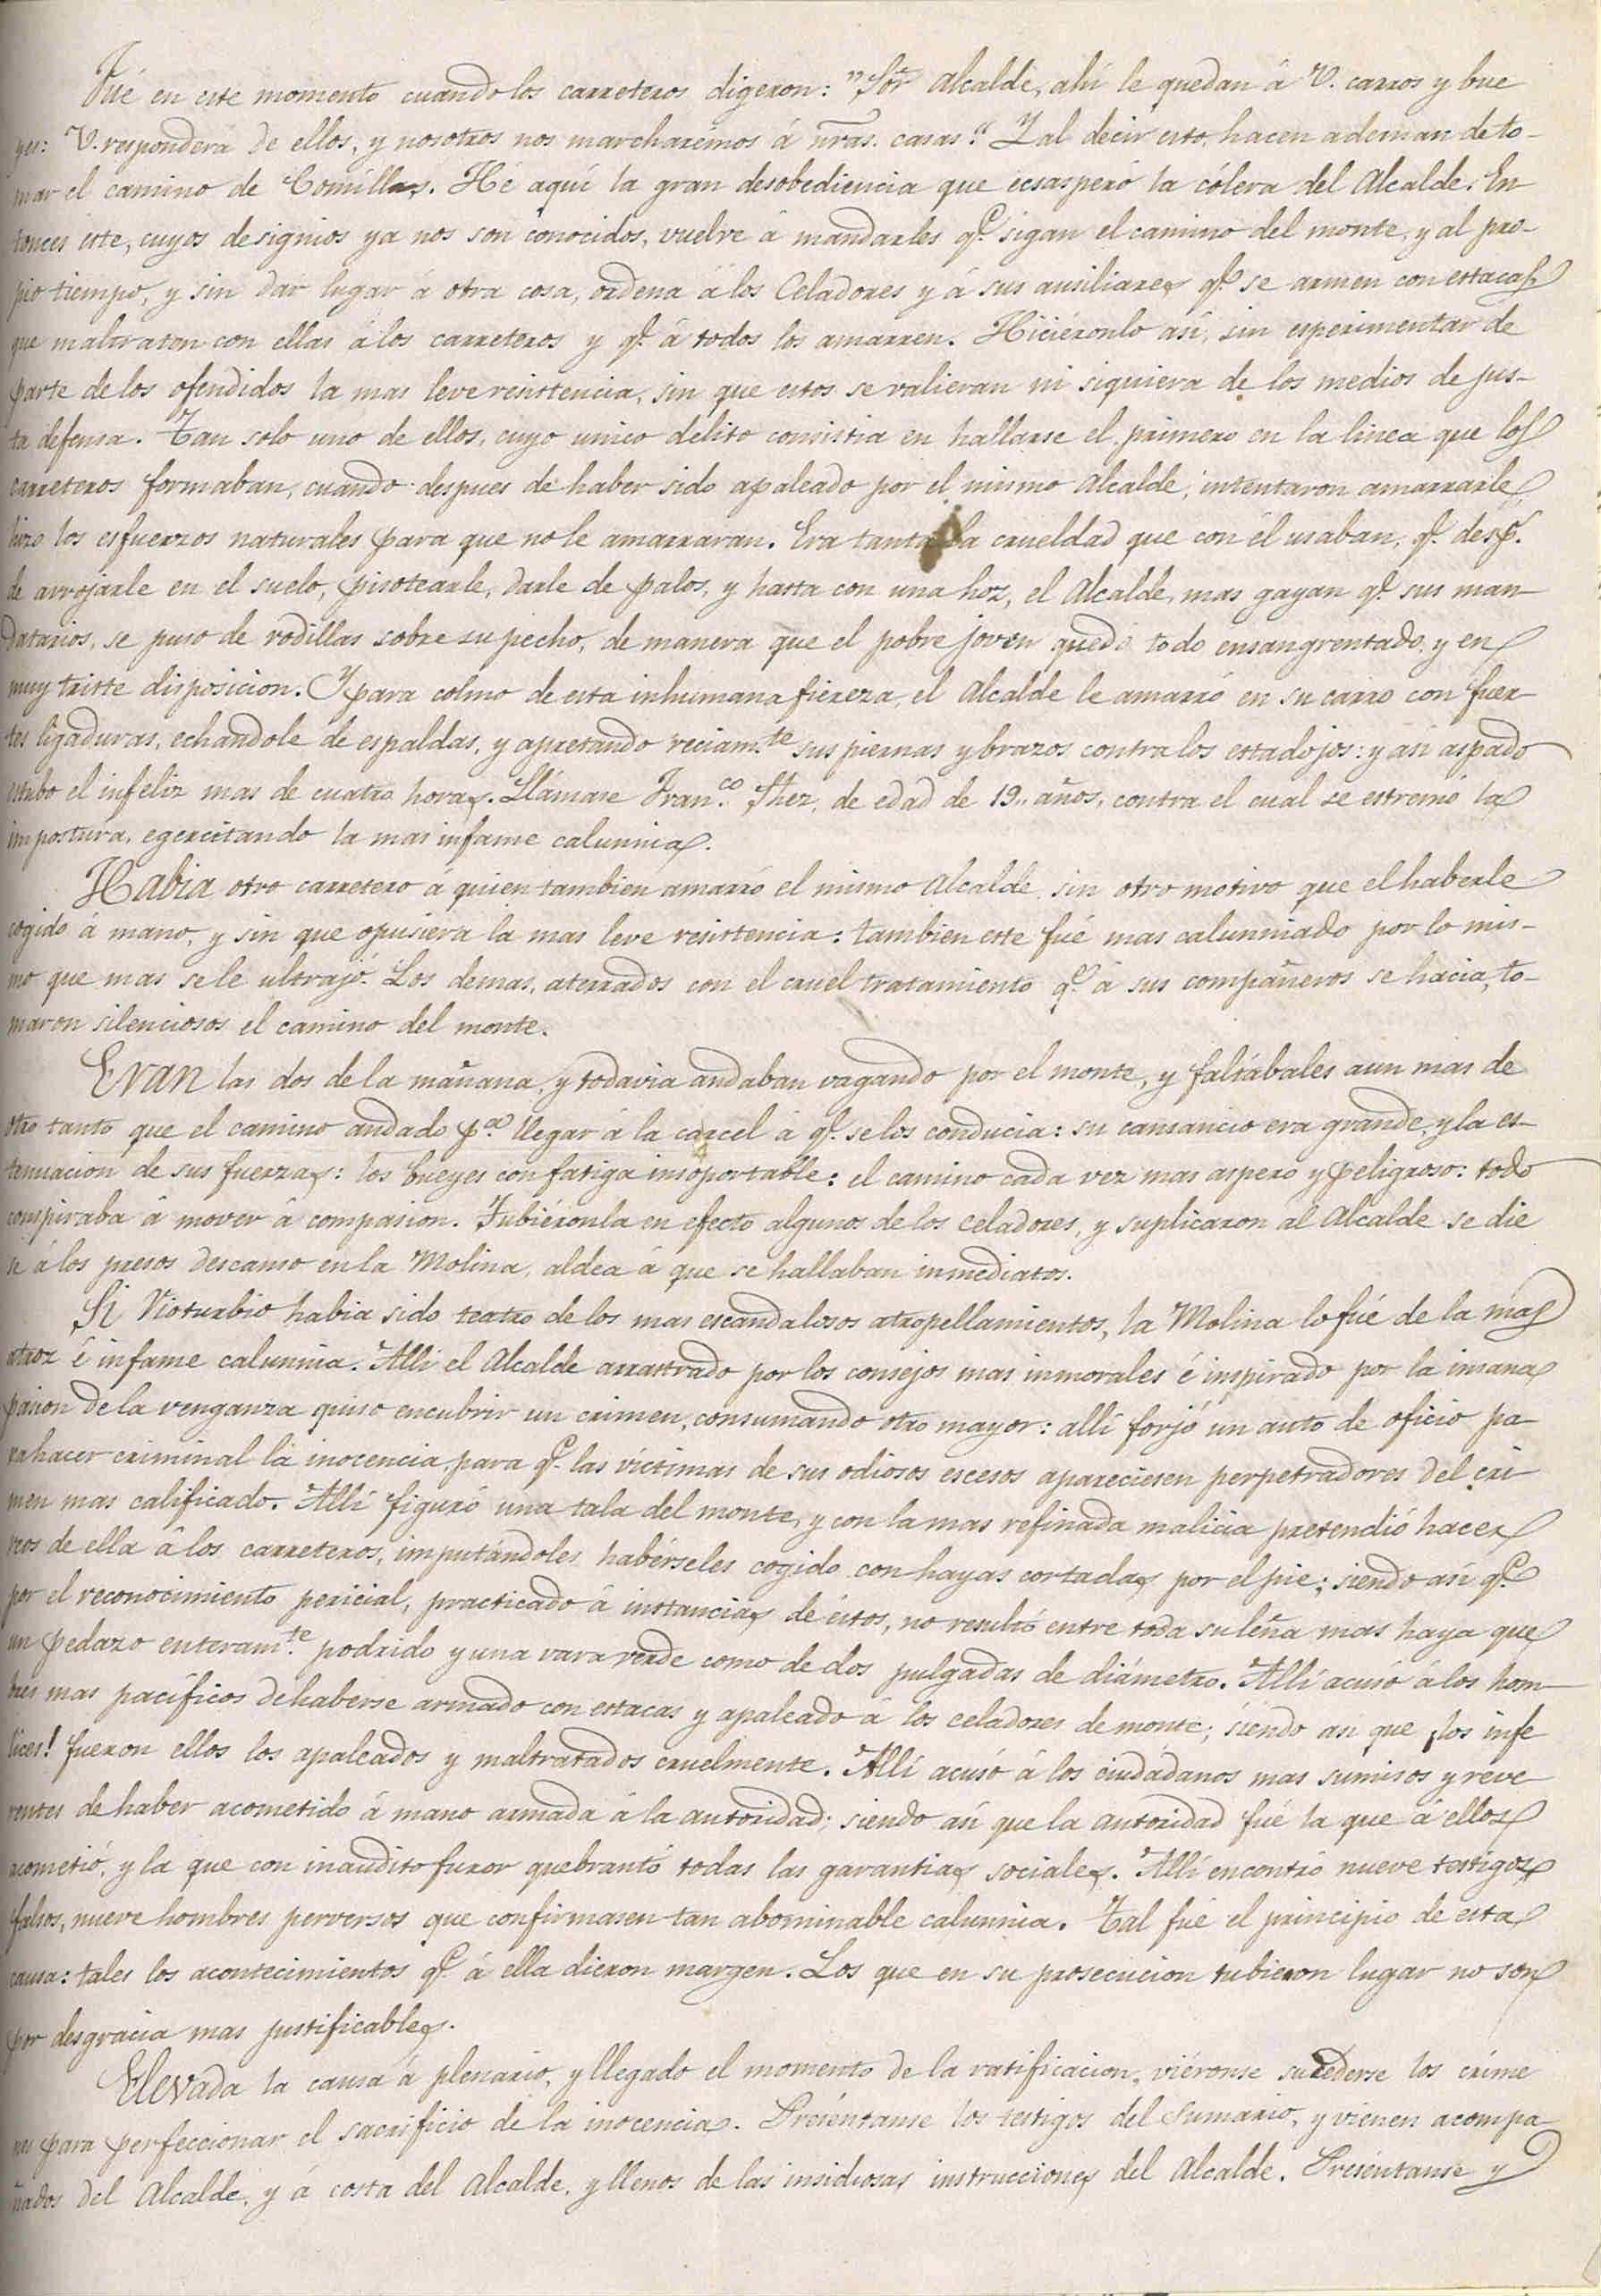 Fué en este momento cuando los carreteros digeron: "Sor̃ Alcalde, ahí le quedan á V. carros y bue
yes: V. respondera de ellos, y nosotros nos marcharémos á nr̃as. casas." Y al decir esto, hacen ademan de to-
mar el camino de Comillas. Hé aquí la gran desobediencia que ecsasperó la cólera del Alcalde. En
tonces este, cuyos designios ya nos son conocidos, vuelve á mandarles q.e sigan el camino del monte, y al pro-
pio tiempo, y sin dar lugar á otra cosa, ordena á los Celadores y á sus ausiliares q.e se armen con estacas
que maltraton con ellas á los carreteros y q.e á todos los amarren. Hiciéronlo así, sin esperimentar de
parte de los ofendidos la mas leve resistencia, sin que estos se valieran ni siquiera de los medios de jus-
ta defensa. Tan solo uno de ellos, cuyo unico delito consistia en hallarse el primero en la linea que los
carreteros formaban, cuando despues de haber sido apaleado por el mismo Alcalde, intentaron amarrarle,
hizo los esfuerzos naturales para que no le amarraran. Era tanta la crueldad que con él usaban, q.e desp.s
de arrojarle en el suelo, pisotearle, darle de palos, y hasta con una hoz, el Alcalde, mas gayan q.e sus man-
datarios, se puso de rodillas sobre su pecho, de manera que el pobre joven quedó todo ensangrentado, y en
muy triste disposicion. Y para colmo de esta inhumana fiereza, el Alcalde le amarró en su carro con fuer-
tes ligaduras, echandole de espaldas, y apretando reciam.te sus piernas y brazos contra los estadojos: y así aspado
estubo el infeliz mas de cuatro horas. Llámase Fran.co Shez, de edad de 19,, años, contra el cual se estremó la
impostura, egercitando la mas infame calumnia.
Habia otro carretero á quien tambien amarró el mismo Alcalde, sin otro motivo que el haberle
cogido á mano, y sin que opusiera la mas leve resistencia: tambien este fué mas calumniado por lo mis-
mo que mas se le ultrajó. Los demas, aterrados con el cruel tratamiento q.e á sus compañeros se hácia, to-
maron silenciosos el camino del monte.
Eran las dos de la mañana, y todavia andaban vagando por el monte, y faltábales aun mas de
otro tanto que el camino andado p.a llegar á la carcel á q.e se los conducia: su cansancio era grande, y la es-
tenuacion de sus fuerzas: los bueyes con fatiga insoportable: el camino cada vez mas aspero y peligroso: todo
conspiraba á mover á compasion. Tubiéronla en efecto algunos de los celadores, y suplicaron al Alcalde se die
se á los presos descanso en la Molina, aldea á que se hallaban inmediatos.
Si Vioturbio habia sido teatro de los mas escandalosos atropellamientos, la Molina lo fué de la mas
atroz é infame calumnia. Allí el Alcalde arrastrado por los consejos mas inmorales é inspirado por la insana
pasion de la venganza quiso encubrir un crimen, consumando otro mayor: allí forjó un auto de oficio pa-
ra hacer criminal la inocencia, para q.e las víctimas de sus odiosos escesos apareciesen perpetradores del crí
men mas calificado. Allí figuró una tala del monte, y con la mas refinada malicia pretendió hacer
reos de ella á los carreteros, imputándoles habérseles cogido con hayas cortadas por el pie; siendo así q.e
por el reconocimiento pericial, practicado á instancias de éstos, no resultó entre toda su leña mas haya que
un pedazo enteram.te podrido y una vara verde como de dos pulgadas de diámetro. Allí acusó á los hom-
bres mas pacíficos de haberse armado con estacas y apaleado á los celadores de monte; siendo asi que ¡los infe
lices! fueron ellos los apaleados y maltratados cruelmente. Allí acusó á los ciudadanos mas sumisos y reve-
rentes de haber acometido á mano armada á la autoridad; siendo así que la autoridad fué la que á ellos
acometió, y la que con inaudito furor quebrantó todas las garantias sociales. Allí encontró nueve testigos
falsos, nueve hombres perversos que confirmasen tan abominable calumnia. Tal fué el principio de esta
causa: tales los acontecimientos q.e á ella dieron margen. Los que en su prosecucion tubieron lugar no son
por desgracia mas justificables.
Elevada la causa á plenario, y llegado el momento de la ratificacion, viéronse sucederse los críme
nes para perfeccionar el sacrificio de la inocencia. Preséntanse los testigos del Sumario, y vienen acompa-
ñados del Alcalde, y á costa del Alcalde, y llenos de las insidiosas instrucciones del Alcalde. Preséntanse y